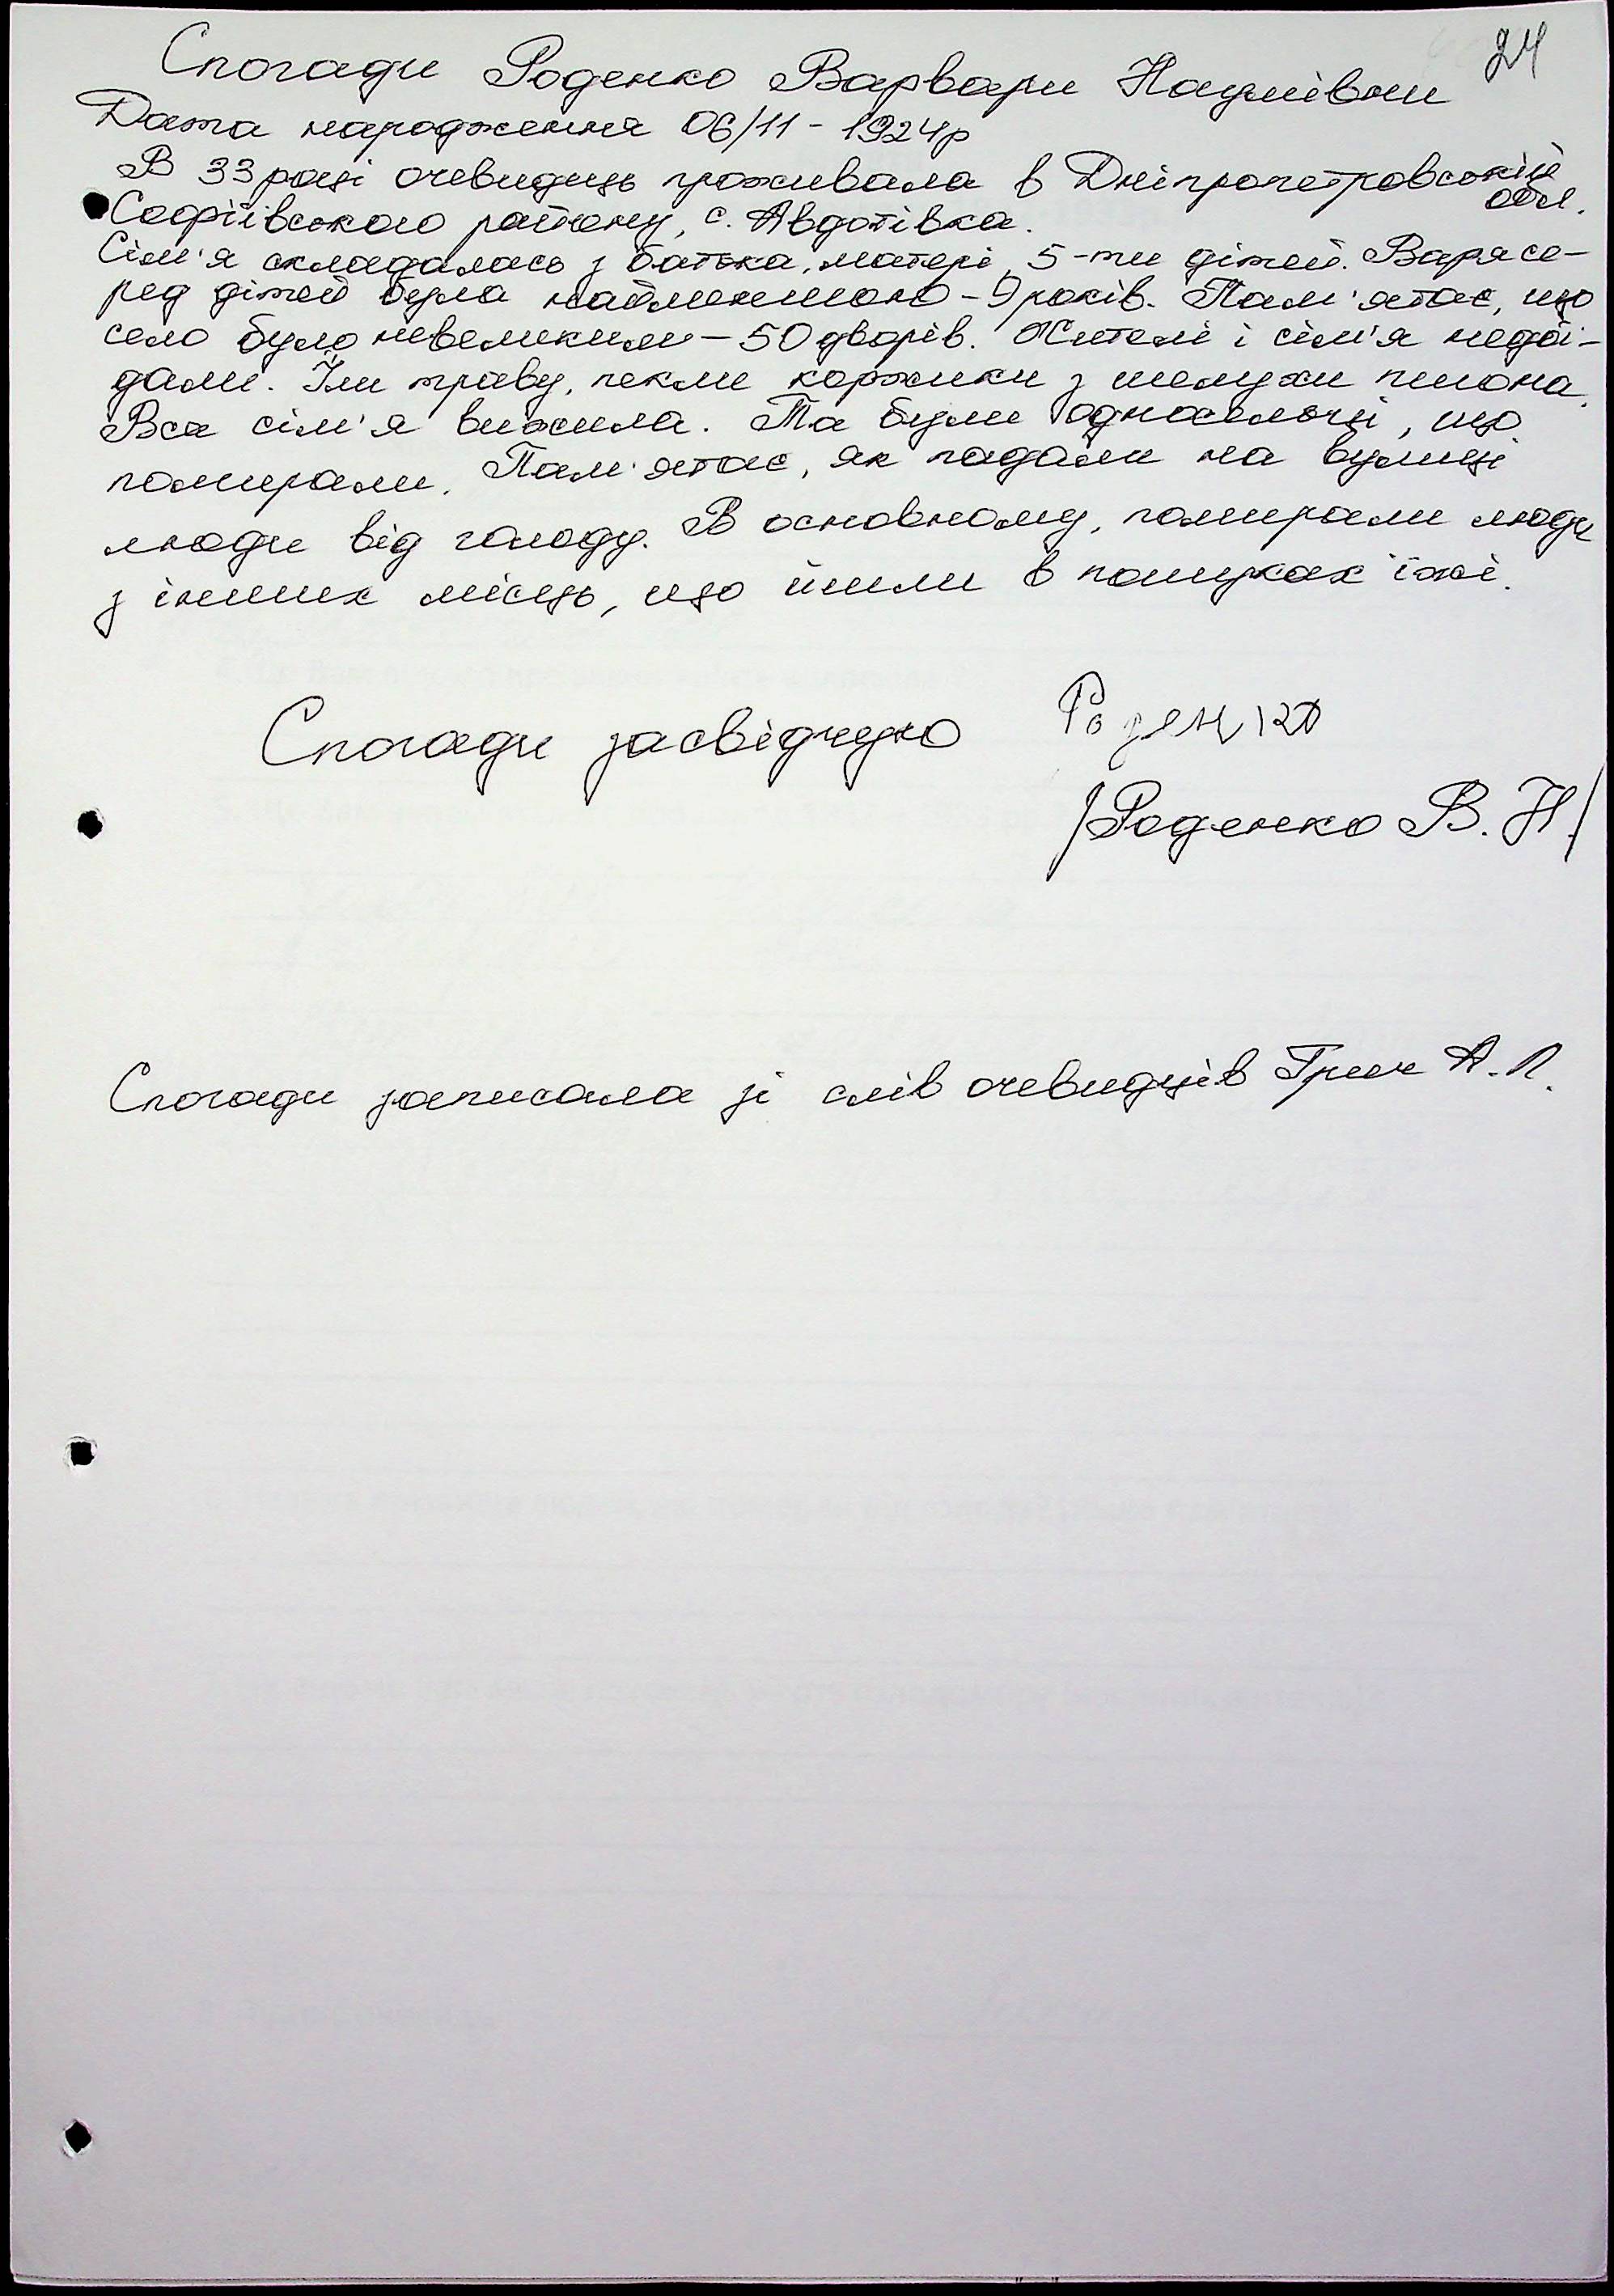 24
Спогади Роденко Варвари Наумівни
Дата народження 06/11 - 1924р
В 33 році очевидець проживала в Дніпропетровській
обл.
Софіївського району, с. Авдотівка.
Сім'я складалась з батька, матері, 5-ти дітей. Варя се-
ред дітей була найменшою - 9 років. Пам'ятає, що
село було невеликим - 50 дворів. Жителі і сім'я недої-
дали. Їли траву, пекли коржики з шелухи пшона.
Вся сім'я вижила. Та були односельчі, що
помирали. Пам'ятає, як падали на вулиці
люди від голоду. В основному, помирали люди
з інших місць, що йшли в пошуках їжі.
Спогади засвідчую
/Роденко В. Н./
Спогади записала зі слів очевидців Грич А. П.